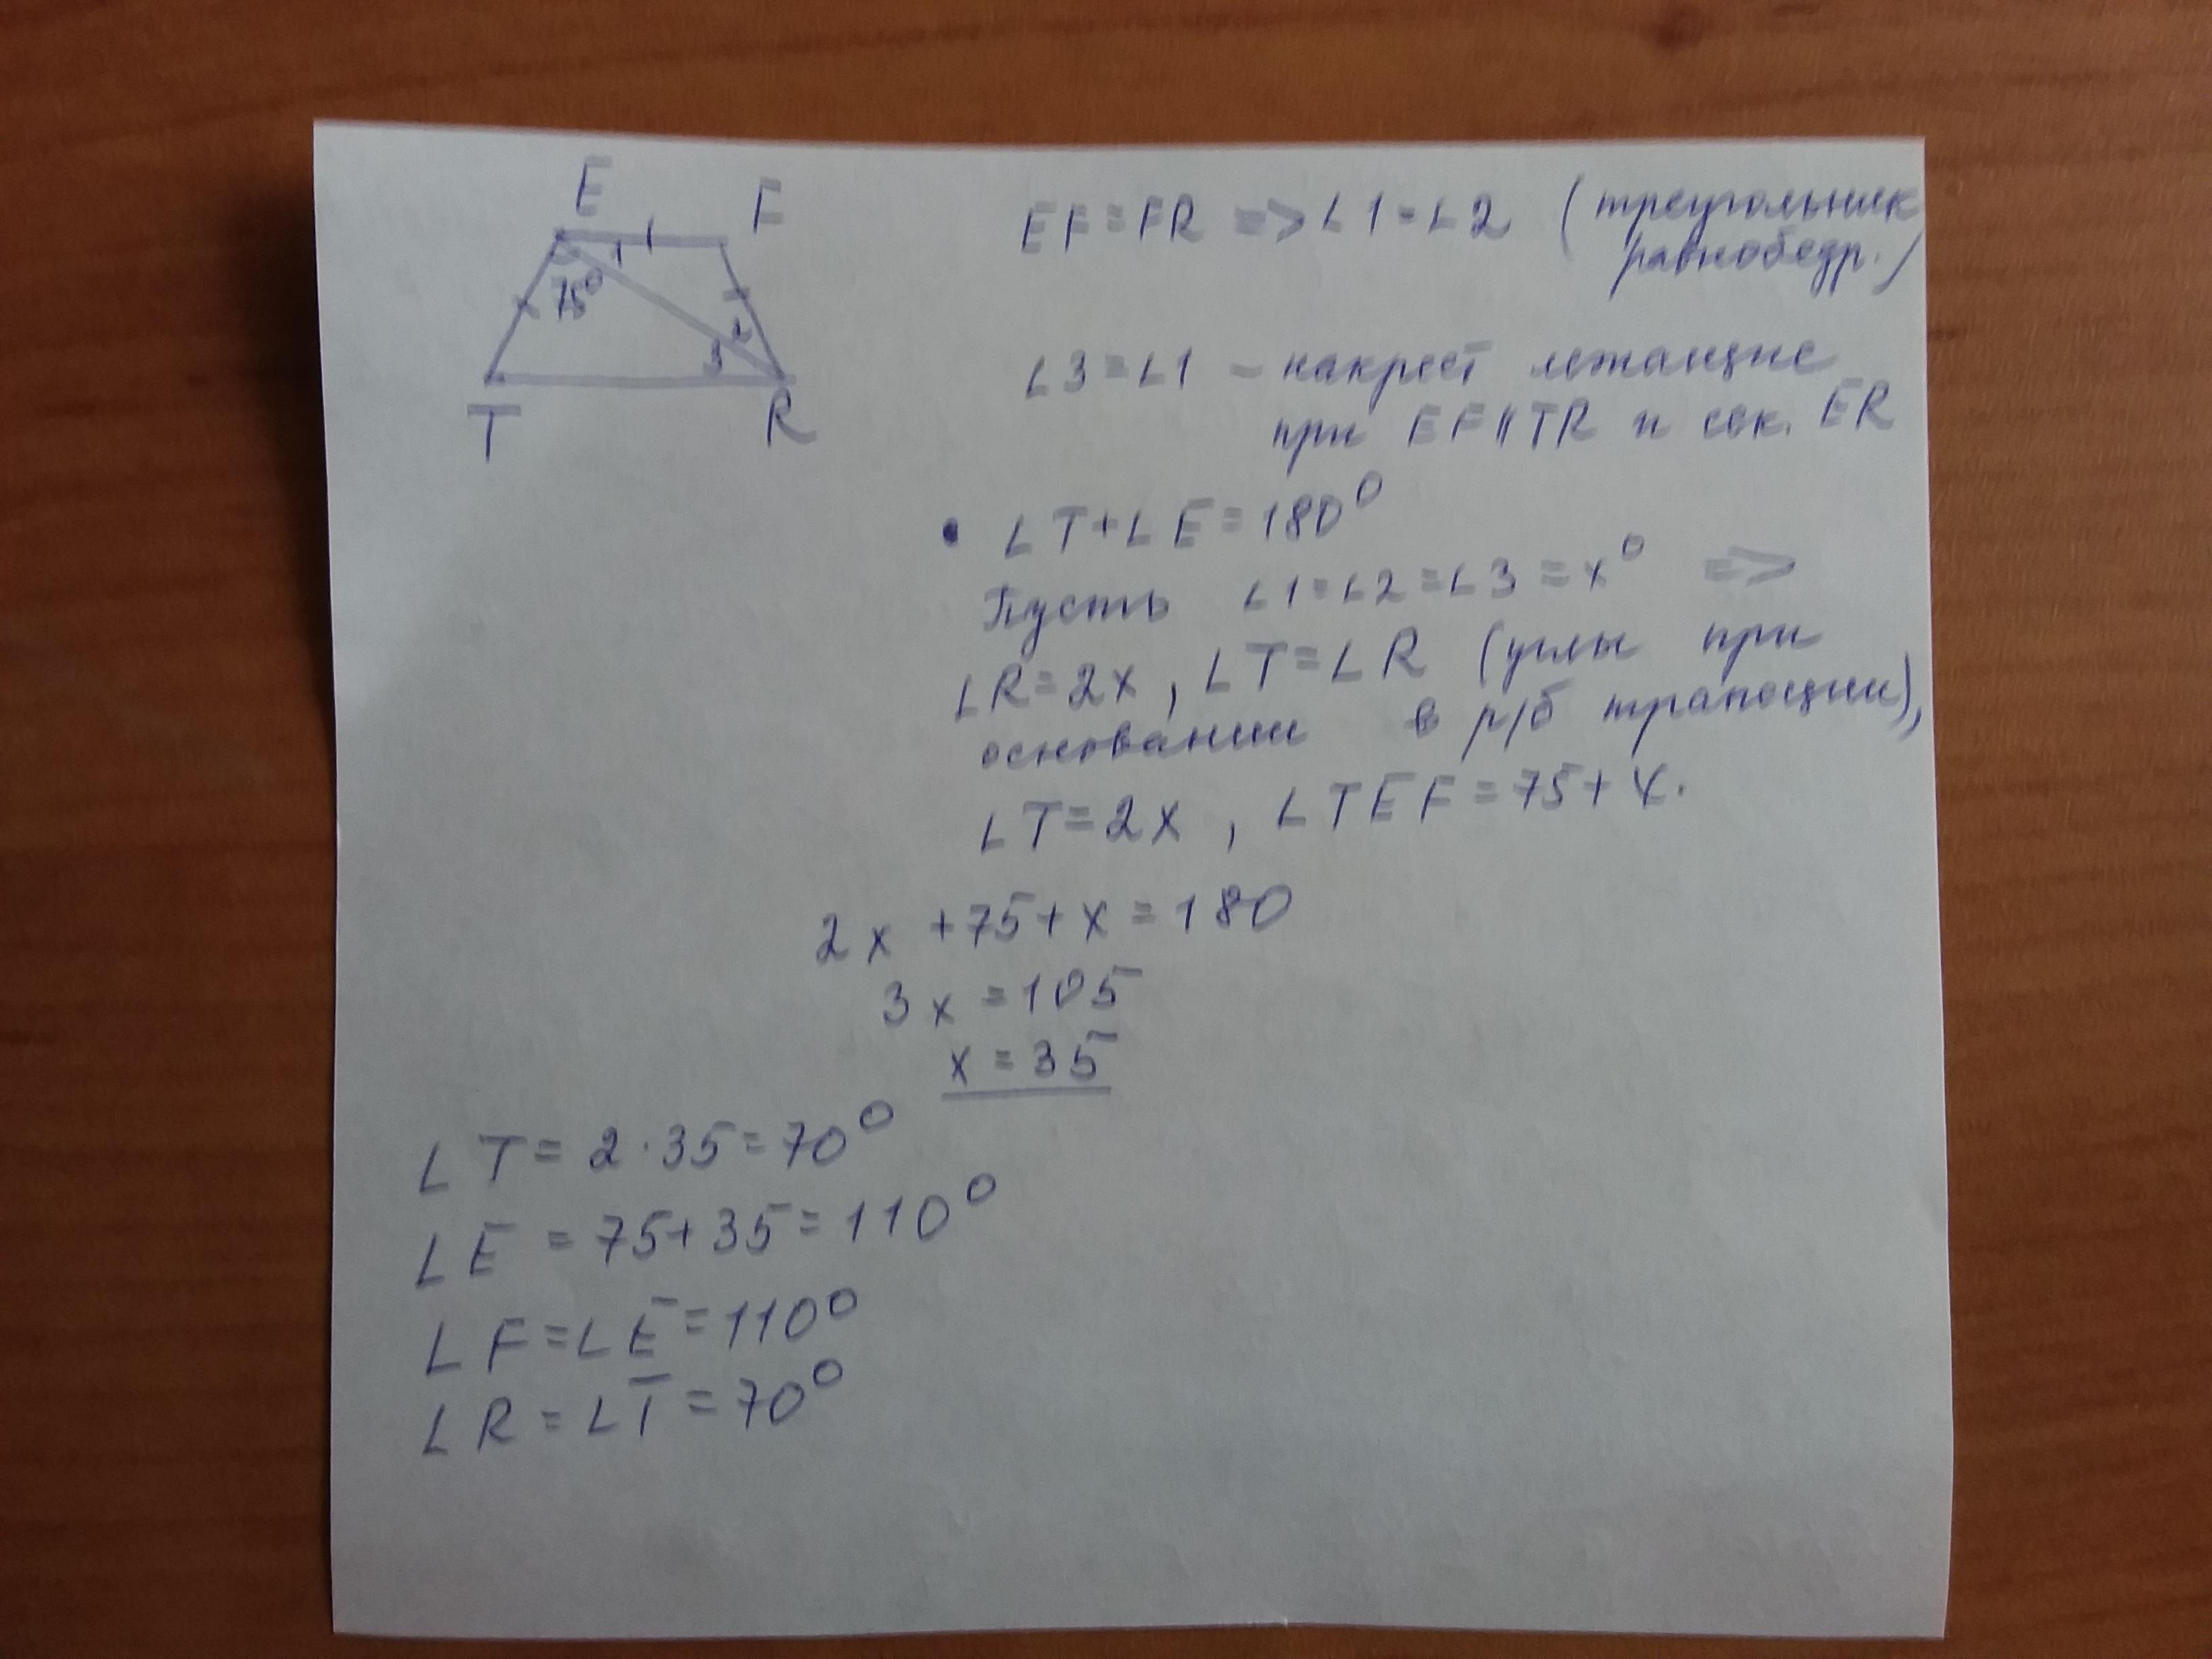 E
F
1
75°
2
3
T
R
EF=FR => ∠1=∠2 (треугольник
равнобедр.)
∠3=∠1 – накрест лежащие
при EF∥TR и сек. ER
• ∠T+∠E=180°
Пусть ∠1=∠2=∠3=x° =>
∠R=2x, ∠T=∠R (углы при
основании в р/б трапеции),
∠T=2x, ∠TEF=75+x.
2x+75+x=180
3x=105
x=35
∠T=2·35=70°
∠E=75+35=110°
∠F=∠E=110°
∠R=∠T=70°